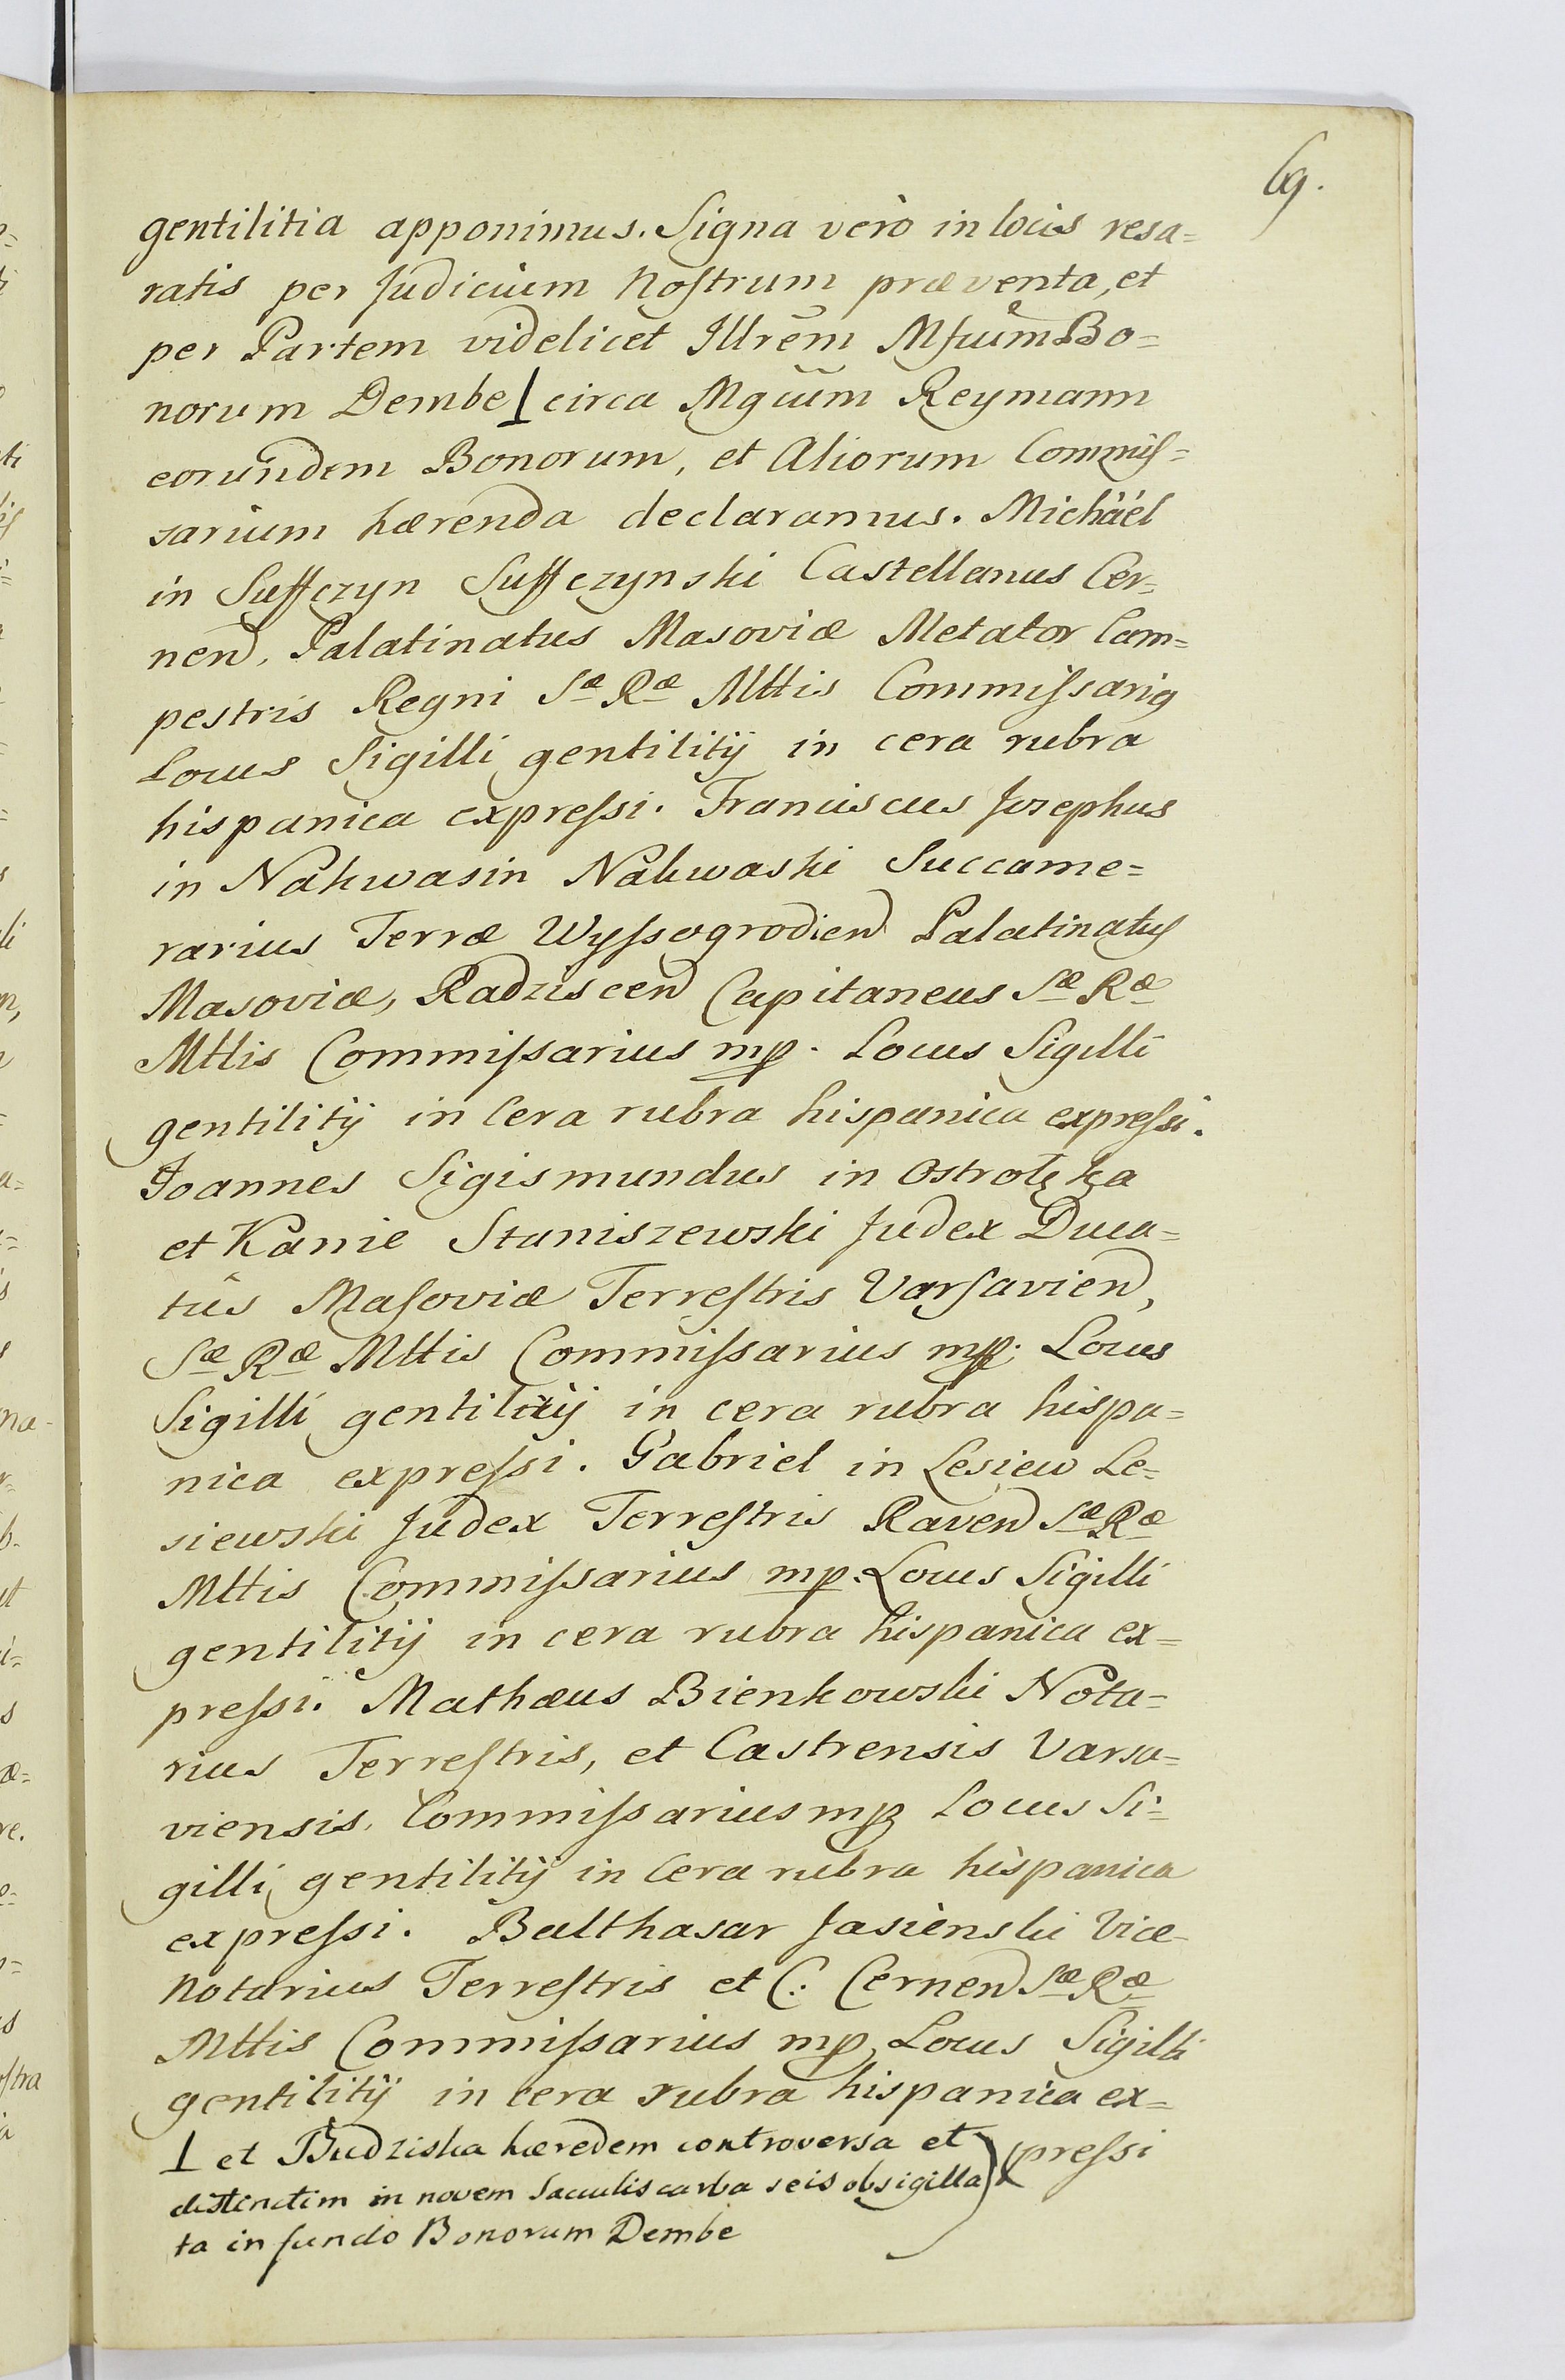 69.
gentilitia apponimus. Signa verò in locis resa=
ratis per Judicium Noſtrum præventa, et
per Partem videlicet Illrem Mſuum Bo=
norum Dembe ⊥ circa Mgcum Reymann
eorundem Bonorum, et Aliorum Commiſ=
sarium hærenda declaramus. Michäél
in Suffczyn Suffczynski Castellanus Cer=
nend, Palatinatus Masoviæ Metator Cam=
pestris Regni Sæ Ræ Mttis Commiſsariꝰ
Locus Sigilli gentilitij in cera rubra
hispanica expreſsi. Franciscus Josephus
in Nakwasin Nakwaski Succame=
rarius Terræ Wyſsogrodien̄d Palatinatuſ
Masoviæ, Radziscend Capitaneus Sæ Ræ
Mttis Commiſsarius mp. Locus Sigilli
gentilitij in Cera rubra hispanica expreſsi.
Joannes Sigismundus in Ostrołęka
et Kanie Staniszewski Judex Duca=
tûs Maſoviæ Terreſtris Varſaviend,
Sæ Ræ Mttis Commiſsarius mp. Locus
Sigilli gentilitij in cera rubra hispa=
nica expreſsi. Gabriel in Lesiew Le=
siewski Judex Terreſtris Ravend Sæ Ræ
Mttis Commiſsarius mp. Locus Sigilli
gentilitij in cera rubra hispanica ex=
preſsi. Mathæus Bienkowski Nota=
rius Terreſtris, et Castrensis Varsa=
viensis, Commiſsarius mp Locus Si=
gilli gentilitij in Cera rubra hispanica
expreſsi. Balthasar Jasienski Vice
Notarius Terreſtris et C. Cernend Sæ Ræ
Mttis Commiſsarius mp, Locus Sigilli
gentilitij in cera rubra hispanica ex=
preſsi
⊥ et Budziska hæredem controversa et
distinctim in novem Sacculis carbaseis obsigilla
ta in fundo Bonorum Dembe